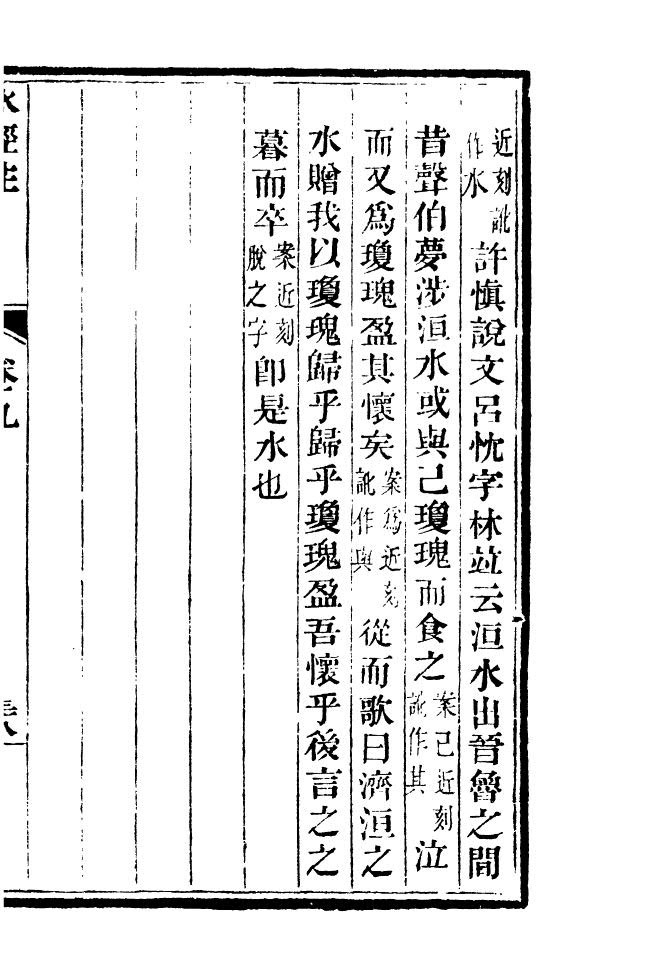 近刻訛作水許愼說文呂忱字林竝云洹水出晉魯之間
昔聲伯夢涉洹水或與己瓊瑰而食之案己近刻訛作其泣
而又爲瓊瑰盈其懷矣案爲近刻訛作與從而歌曰濟洹之
水贈我以瓊瑰歸乎歸乎瓊瑰盈吾懷乎後言之之
暮而卒案近刻脫之字卽是水也
水經注 卷九